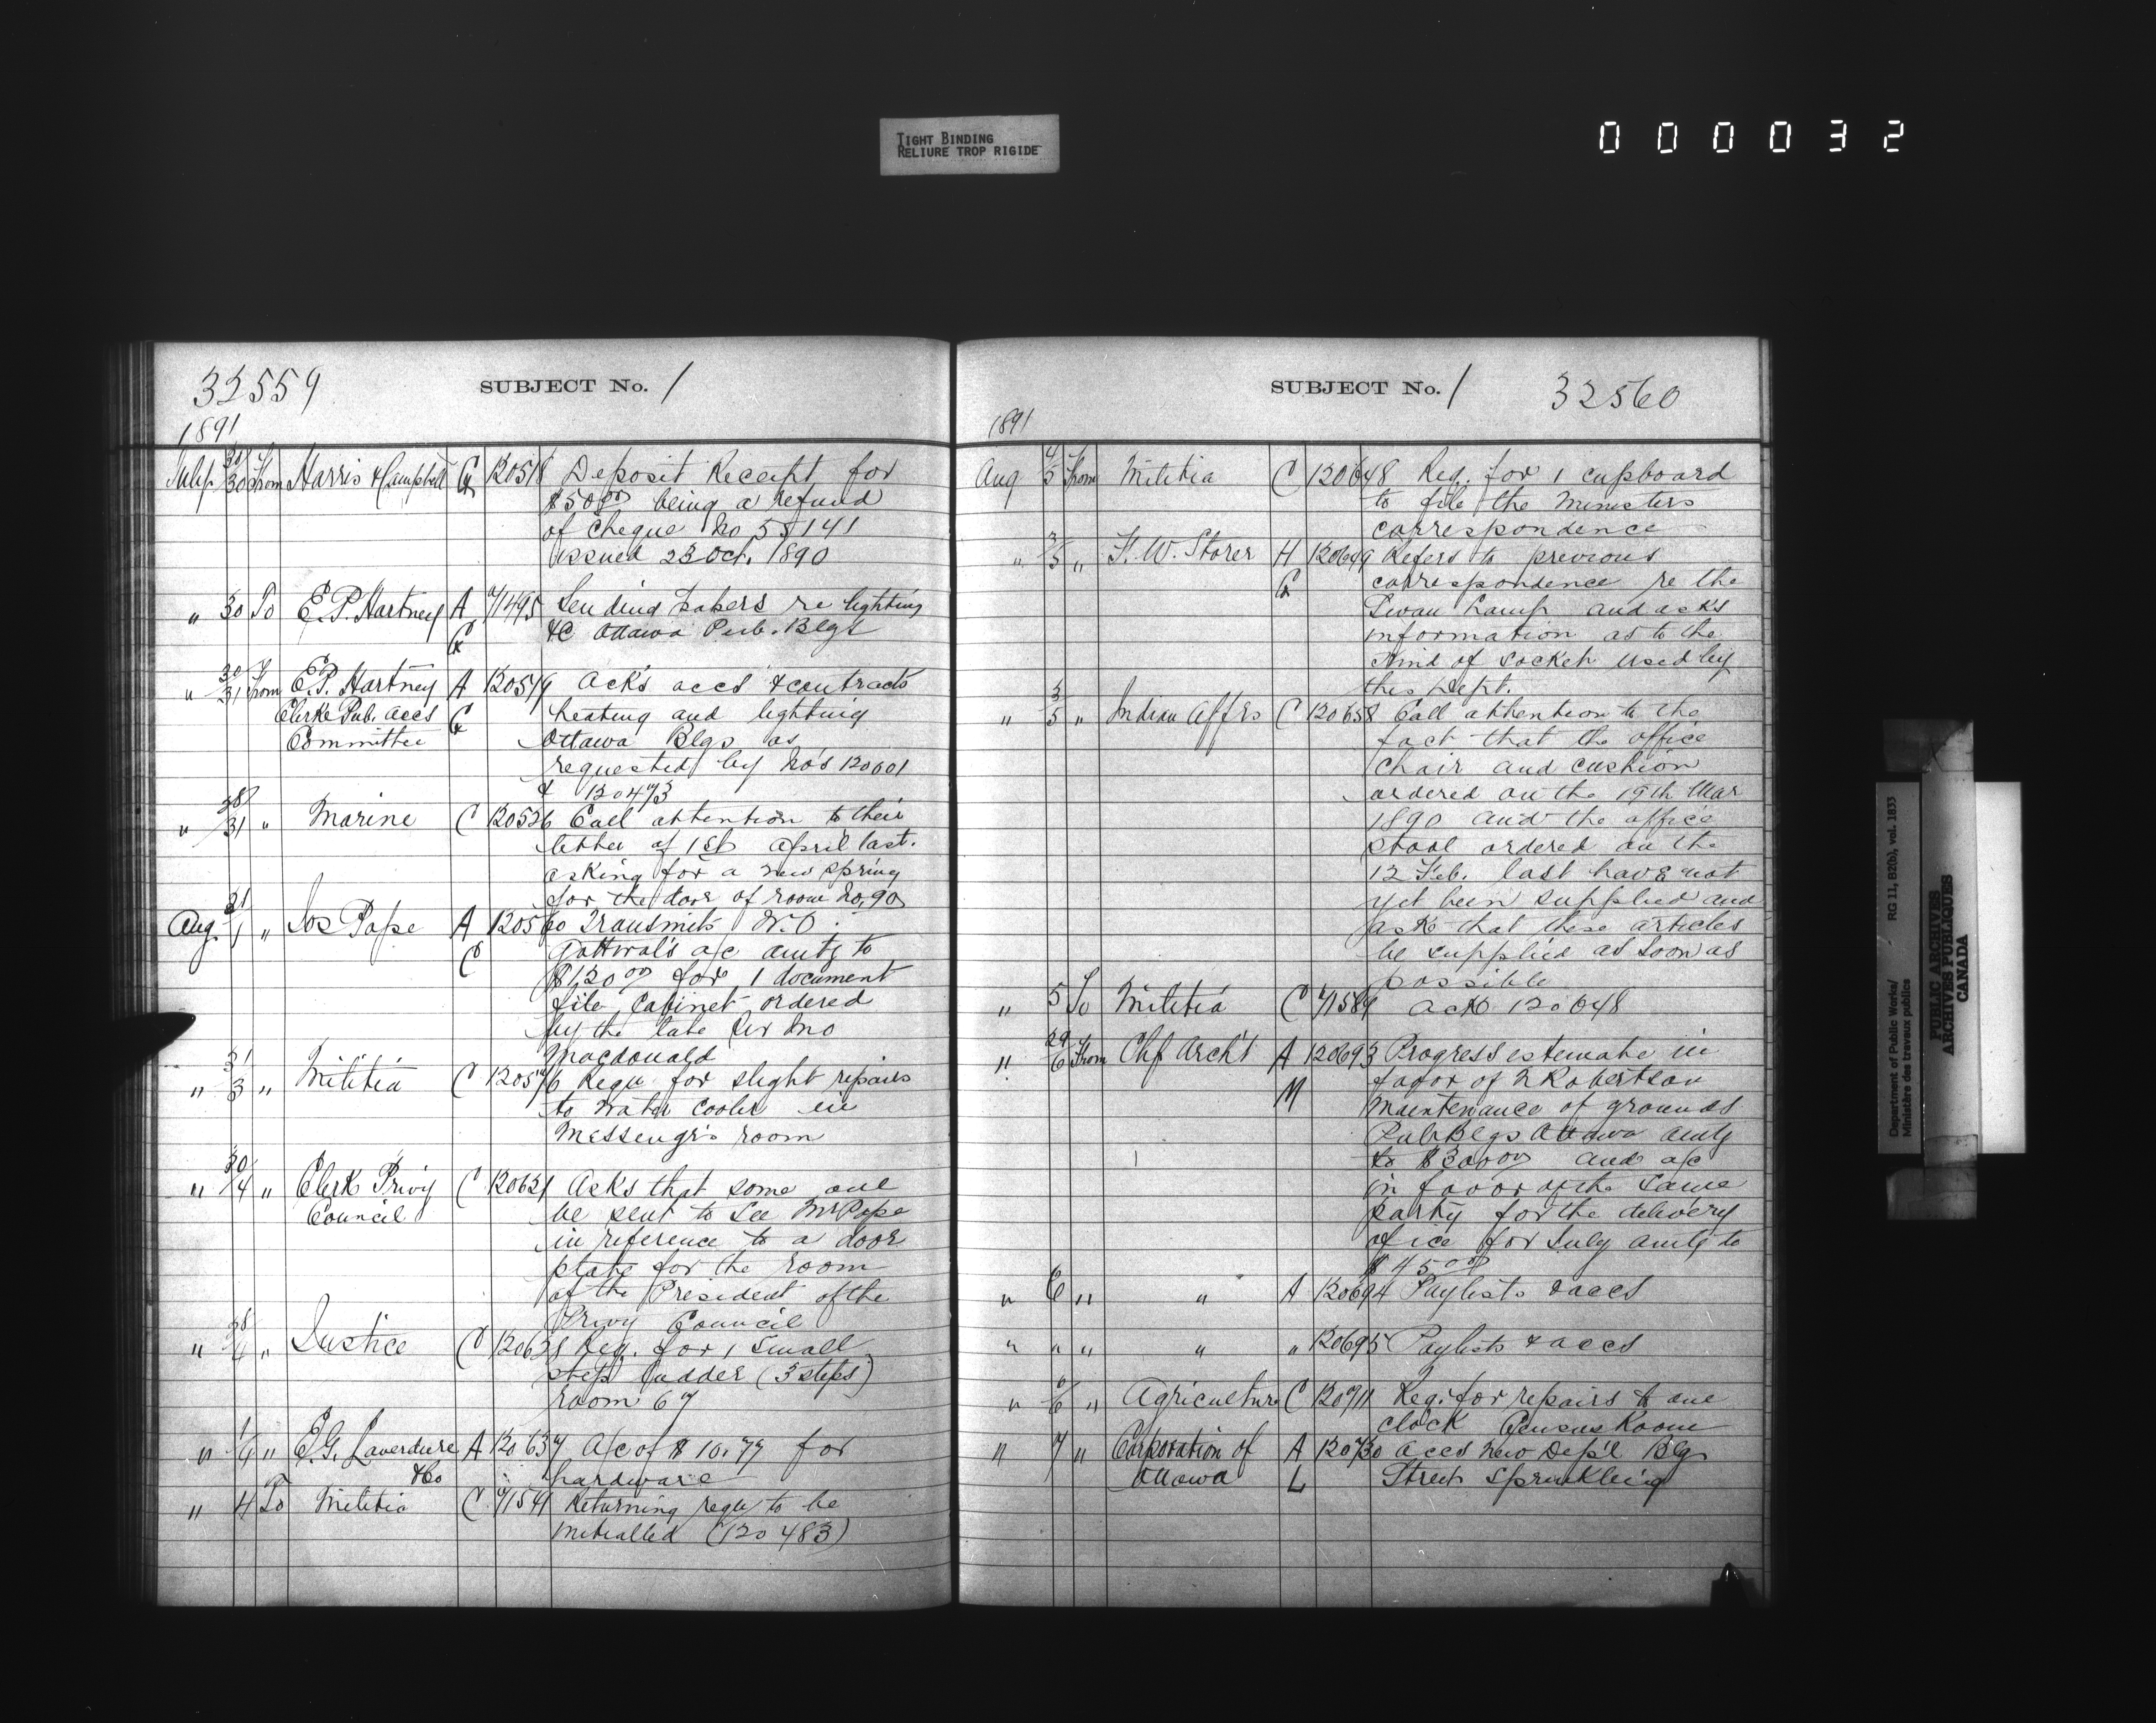 TIGHT BINDING
RELIURE TROP RIGIDE
000032
32559 SUBJECT No. 1
1891
July 30/30 From Harris & Campbell G 120518 Deposit Receipt for
$50.00 being a refund
of cheque No 55141
issued 23 Oct. 1890
" 30 To E.P. Hartney A 71495 Sending papers re lighting
G &c Ottawa Pub. Blgs
" 30/31 From E.P. Hartney A 120519 Acks accs & contracts
Clerk Pub. Accs G heating and lighting
Committee Ottawa Blgs as
requested by No's 120601
& 120473
" 28/31 " Marine C 120526 Call attention to their
letter of 1st April last.
asking for a new spring
for the door of room No. 90
Aug. 31/1 " Jos Pope A 120560 Transmits W.O.
C a/c amtg to
$120.00 for 1 document
file Cabinet ordered
by the late Sir Jno
Macdonald
" 31/3 " Militia C 120576 Requ for slight repairs
to water cooler in
Messengr's room
" 30/4 " Clerk Privy C 120621 Asks that some one
Council be sent to see Mr Pope
in reference to a door
plate for the room
of the President of the
Privy Council
" 28/4 " Justice C 120628 Req. for 1 small
step ladder (3 steps)
room 67
" 1/4 " E.G. Laverdure A 120637 A/c of $10.77 for
&Co hardware
" 4 To Militia C 71541 Returning requ to be
initialled (120483)
SUBJECT No. 1 32560
1891
Aug 4/5 From Militia C 120648 Req. for 1 cupboard
to file the Ministers
correspondence
" 3/5 " F.W. Storer H 120649 Refers to previous
G correspondence re the
Swan Lamp and asks
information as to the
kind of socket used by
this Dept.
" 3/5 " Indian Affrs C 120658 Call attention to the
fact that the office
chair and cushion
ordered on the 19th Mar
1890 and the office
stool ordered on the
12 Feb. last have not
yet been supplied and
ask that these articles
be supplied as soon as
possible
" 5 To Militia C 71589 Ack 120648
" 29/6 From Chf Archt A 120693 Progress estimate in
M favor of N Robertson
maintenance of grounds
Pub Blgs Ottawa amtg
to $300.00 and a/c
in favor of the same
party for the delivery
of ice for July amtg to
$45.00
" 6 " " A 120694 Paylists & accs
" " " " " 120695 Paylists & accs
" 6/6 " Agriculture C 120711 Req. for repairs to one
clock Census Room
" 7 " Corporation of A 120730 accs New Dep'l Blg
Ottawa L Street Sprinkling
Department of Public Works/
Ministère des travaux publics
RG 11, B2(b), vol. 1833
PUBLIC ARCHIVES
ARCHIVES PUBLIQUES
CANADA